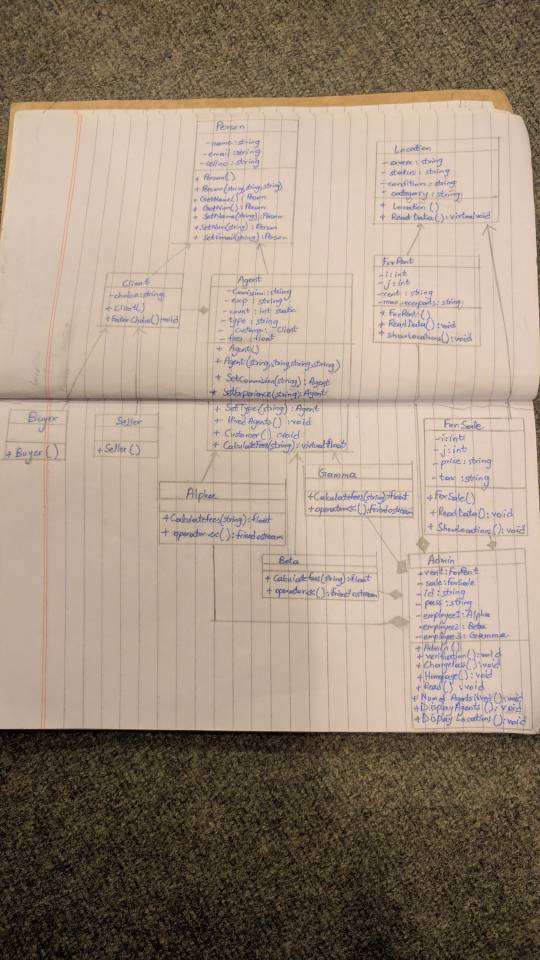 Person
- name : string
- email : string
+ Person()
+ Person(string, string, string)
+ GetName() : Person
+ GetNum() : Person
+ SetName(string) : Person
+ SetNum(string) : Person
+ SetEmail(string) : Person
Location
- area : string
- status : string
- condition : string
- category : string
+ Location()
+ ReadData() : virtual void
Client
- choice : string
+ Client()
+ EnterChoice() : void
Agent
- exp : string
- count : int static
- type : string
- customer : Client
- fees : float
+ Agent()
+ Agent(string, string, string, string)
+ SetCommission(string) : Agent
+ SetExperience(string) : Agent
+ SetType(string) : Agent
+ HiredAgents() : void
+ Customer() : void
+ CalculateFees(string) : virtual float
ForRent
- i : int
- j : int
- rent : string
+ ForRent()
+ ReadData() : void
+ ShowLocations() : void
Buyer
+ Buyer()
Seller
+ Seller()
ForSale
- i : int
- j : int
- price : string
- tax : string
+ ForSale()
+ ReadData() : void
+ ShowLocations() : void
Alpha
+ CalculateFees(string) : float
+ operator<<() : friend ostream
Gramma
+ CalculateFees(string) : float
+ operator<<() : friend ostream
Beta
+ CalculateFees(string) : float
+ operator<<() : friend ostream
Admin
+ rent : ForRent
- sale : ForSale
- id : string
- pass : string
- employee1 : Alpha
- employee2 : Beta
- employee3 : Gramma
+ Admin()
+ Verification() : void
+ ChangePass() : void
+ Homepage() : void
+ Read() : void
+ Display Agents() : void
+ Display Locations() : void